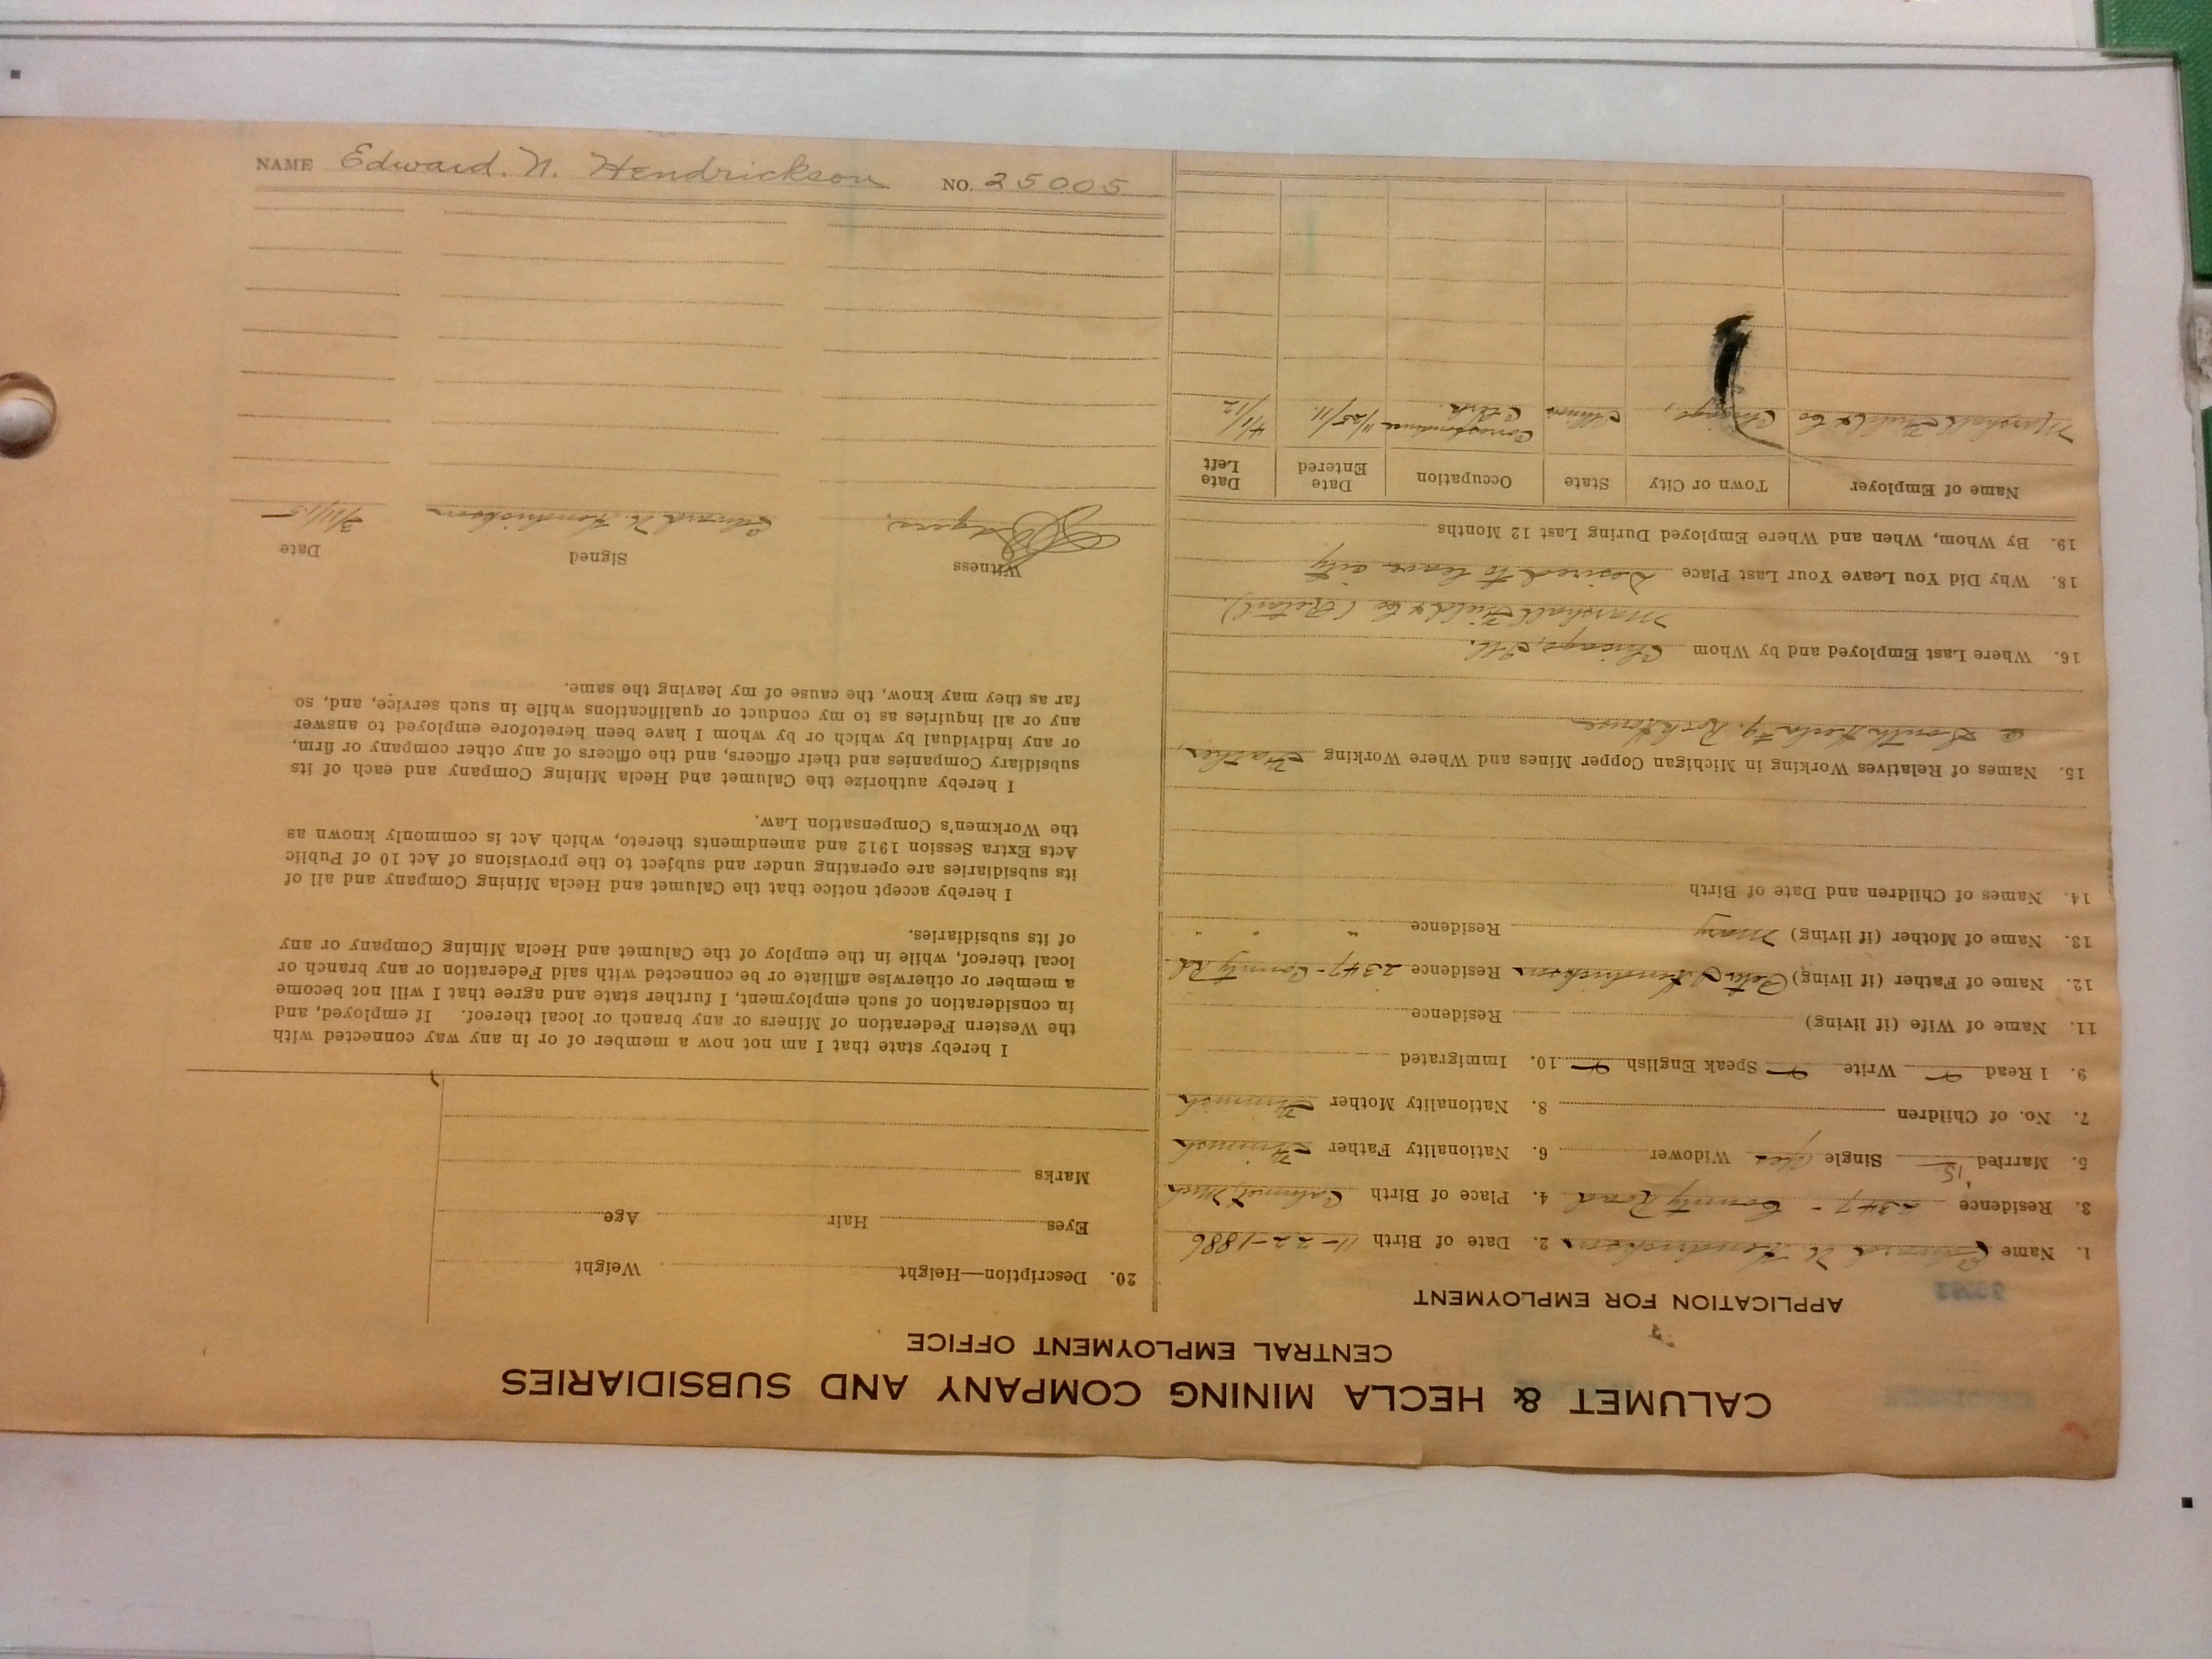 CALUMET & HECLA MINING COMPANY AND SUBSIDIARIES
CENTRAL EMPLOYMENT OFFICE
APPLICATION FOR EMPLOYMENT
1. Name Edward N Hendrickson 2. Date of Birth 11-22-1886
3. Residence 2347 - County Road 4. Place of Birth Calumet, Mich
5. Married '15 Single Yes Widower 6. Nationality Father Finnish
7. No. of Children 8. Nationality Mother Finnish
9. I Read Write Speak English 10. Immigrated
11. Name of Wife (if living) Residence
12. Name of Father (if living) Peter Hendrickson Residence 2347 - County Rd
13. Name of Mother (if living) Mary Residence " " "
14. Names of Children and Date of Birth
15. Names of Relatives Working in Michigan Copper Mines and Where Working Father
South Hecla Rockhouse
16. Where Last Employed and by Whom Chicago, Ill.
Marshall Field & Co (Retail).
18. Why Did You Leave Your Last Place Desired to leave city
19. By Whom, When and Where Employed During Last 12 Months
Name of Employer Town or City State Occupation Date Entered Date Left
Marshall Field & Co Chicago, Illinois Correspondence Clerk. 11/25/11. 4/1/12
20. Description—Height Weight
Eyes Hair Age
Marks
I hereby state that I am not now a member of or in any way connected with
the Western Federation of Miners or any branch or local thereof. If employed, and
in consideration of such employment, I further state and agree that I will not become
a member or otherwise affiliate or be connected with said Federation or any branch or
local thereof, while in the employ of the Calumet and Hecla Mining Company or any
of its subsidiaries.
I hereby accept notice that the Calumet and Hecla Mining Company and all of
its subsidiaries are operating under and subject to the provisions of Act 10 of Public
Acts Extra Session 1912 and amendments thereto, which Act is commonly known as
the Workmen's Compensation Law.
I hereby authorize the Calumet and Hecla Mining Company and each of its
subsidiary Companies and their officers, and the officers of any other company or firm,
or any individual by which or by whom I have been heretofore employed to answer
any or all inquiries as to my conduct or qualifications while in such service, and, so
far as they may know, the cause of my leaving the same.
Witness Signed Date
Edward N. Hendrickson 3/11/15
NAME Edward. N. Hendrickson NO. 25005